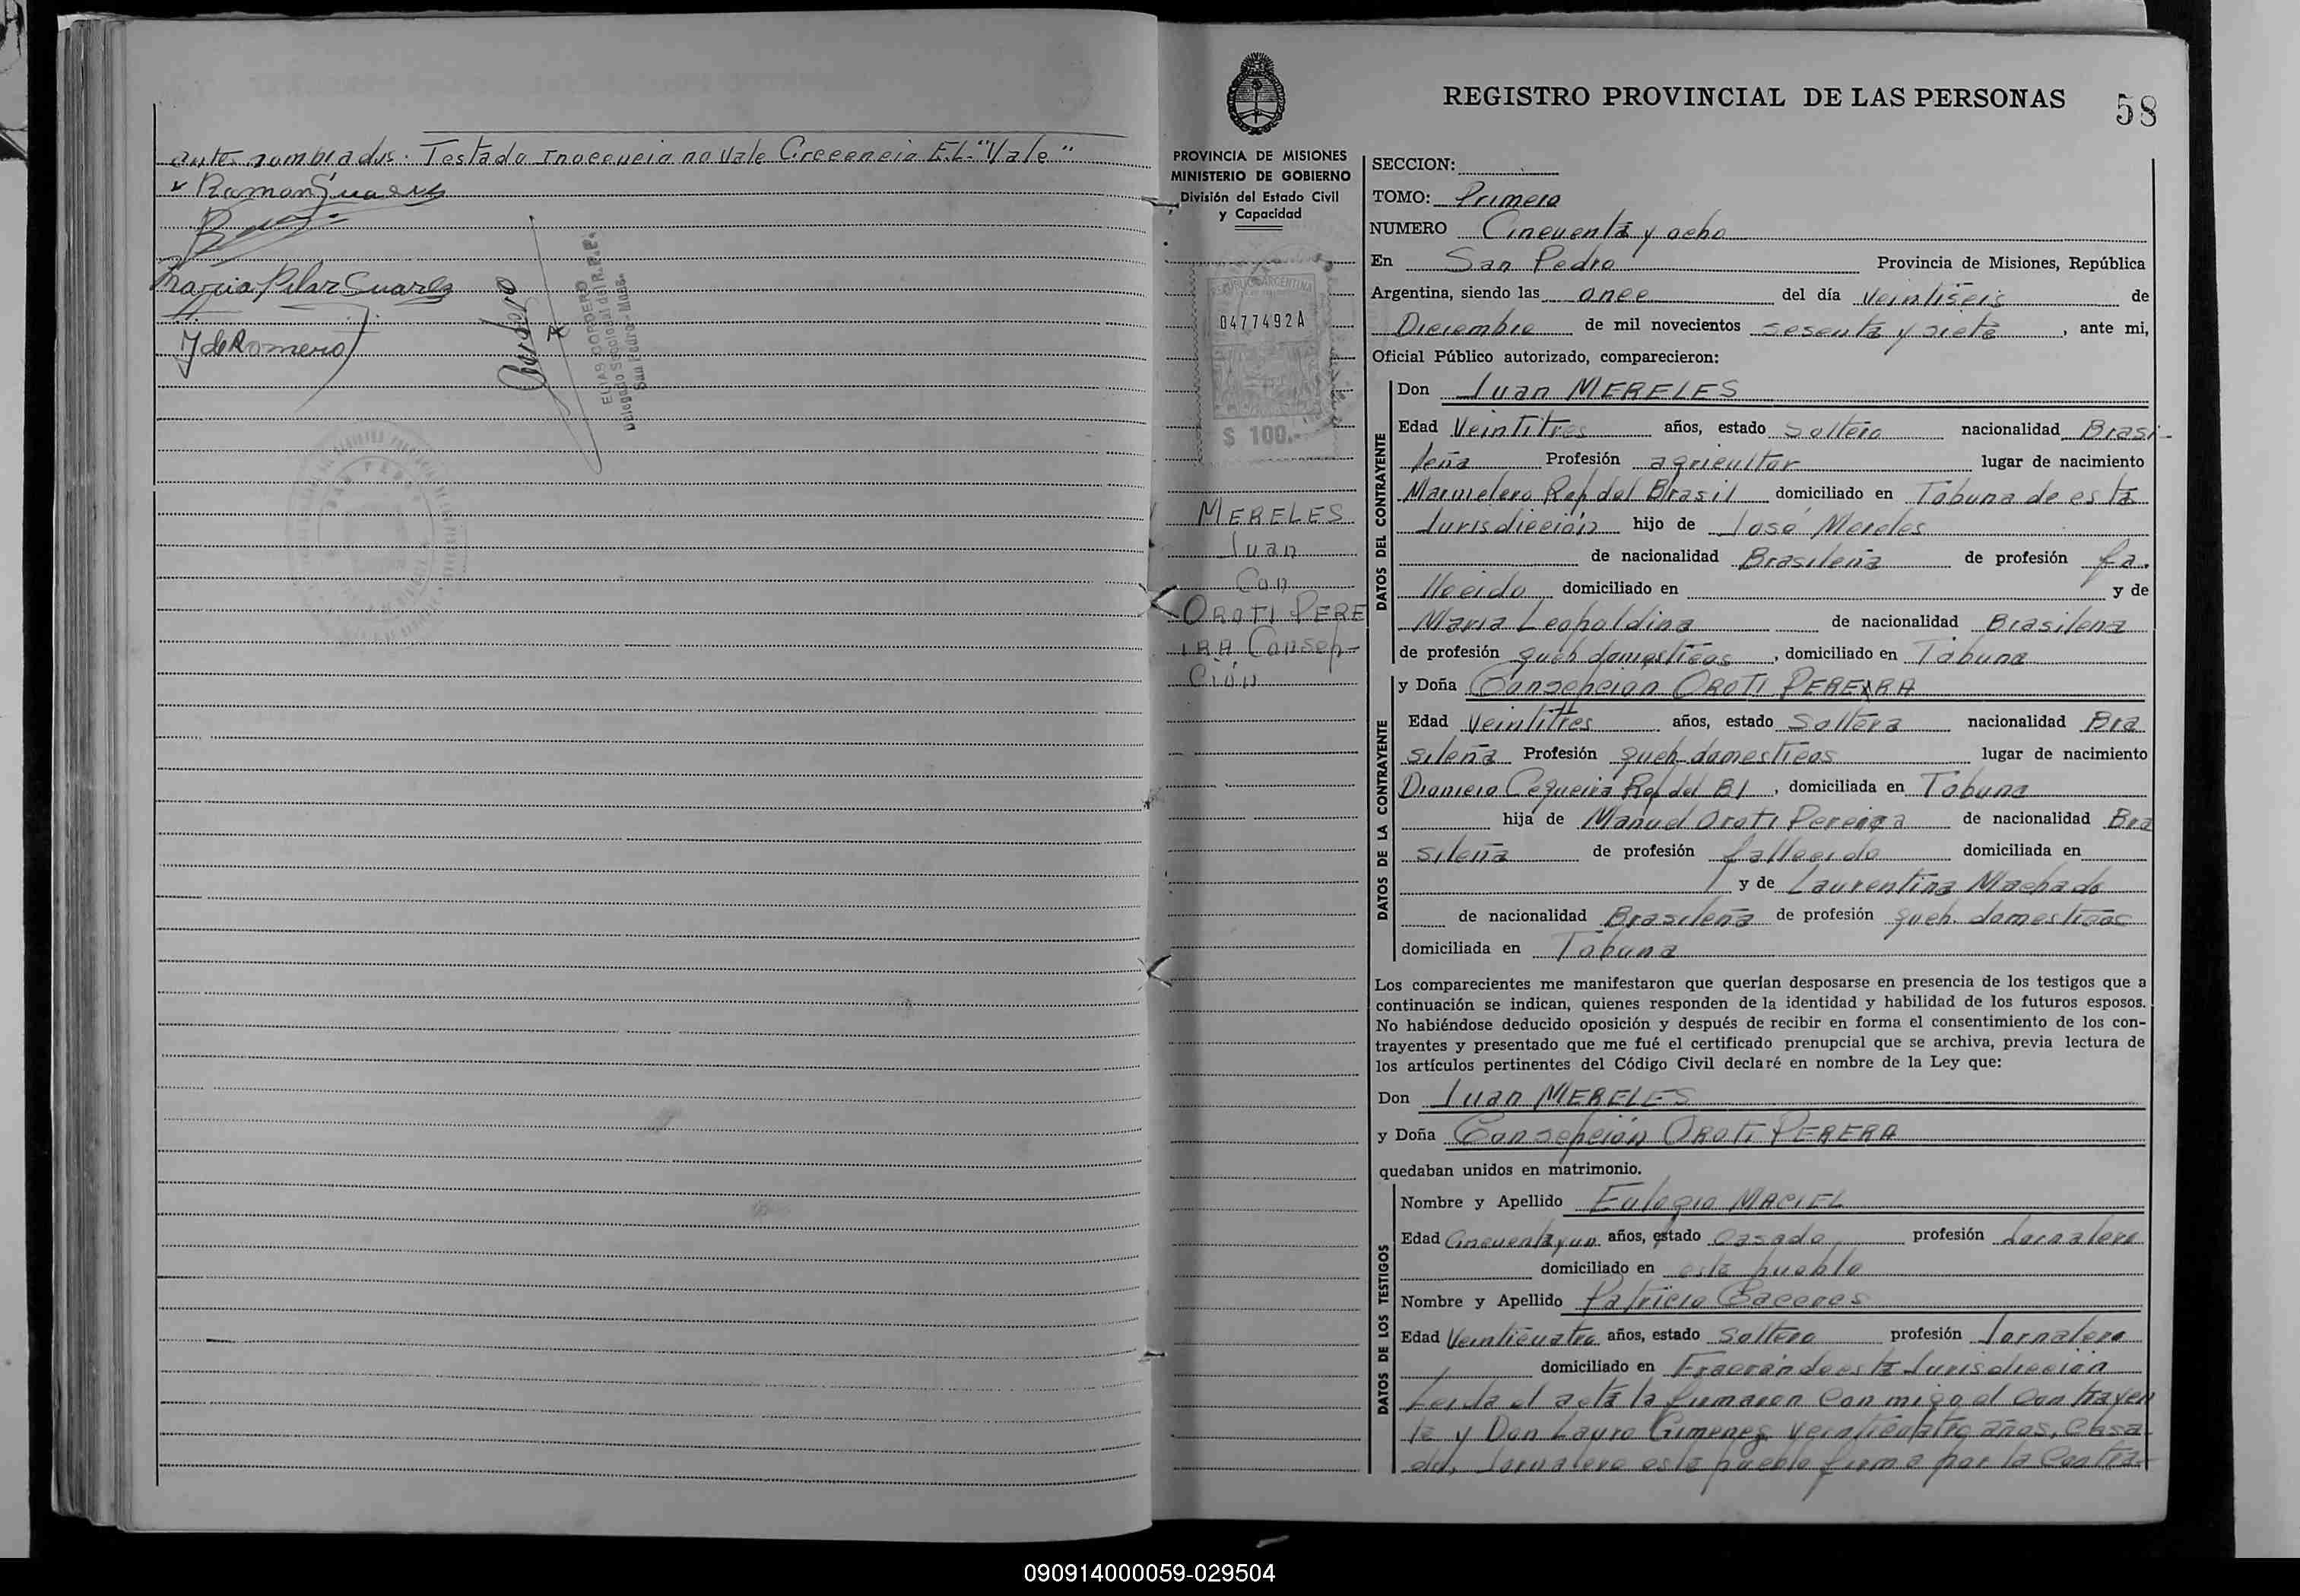 antes nombrados. Testado Inocencia no Vale Crecencia E.L. "Vale"
Ramon Suares
Maria Pilar Suares
Y de Romero
Cordero
ELIAS CORDERO
Delegado Seccional del R.P.P.
San Pedro - Mnes.
REGISTRO PROVINCIAL DE LAS PERSONAS
58
PROVINCIA DE MISIONES
MINISTERIO DE GOBIERNO
División del Estado Civil
y Capacidad
REPUBLICA ARGENTINA
0477492A
$ 100.-
MERELES
Juan
Con
OROTI PERE
IRA Consep-
Ción
SECCION:
TOMO: Primero
NUMERO Cincuenta y ocho
En San Pedro Provincia de Misiones, República
Argentina, siendo las once del día veintiseis de
Diciembre de mil novecientos sesenta y siete, ante mi,
Oficial Público autorizado, comparecieron:
DATOS DEL CONTRAYENTE
Don Juan MERELES
Edad Veintitres años, estado Soltero nacionalidad Brasi-
leña Profesión agricultor lugar de nacimiento
Marmelero Rep del Brasil domiciliado en Tobuna de esta
Jurisdicción hijo de José Mereles
de nacionalidad Brasileña de profesión fa.
llecido domiciliado en y de
Maria Leopoldina de nacionalidad Brasilena
de profesión queh domesticos, domiciliado en Tobuna
DATOS DE LA CONTRAYENTE
y Doña Consepcion OROTI PEREIRA
Edad Veintitres años, estado Soltera nacionalidad Bra
sileña Profesión queh domesticos lugar de nacimiento
Cequeira Rep del Bl, domiciliada en Tobuna
hija de Manuel Oroti Pereira de nacionalidad Bra
sileña de profesión fallecido domiciliada en
y de Laurentina Machado
de nacionalidad Brasileña de profesión queh. domesticos
domiciliada en Tobuna
Los comparecientes me manifestaron que querían desposarse en presencia de los testigos que a
continuación se indican, quienes responden de la identidad y habilidad de los futuros esposos.
No habiéndose deducido oposición y después de recibir en forma el consentimiento de los con-
trayentes y presentado que me fué el certificado prenupcial que se archiva, previa lectura de
los artículos pertinentes del Código Civil declaré en nombre de la Ley que:
Don Juan MERELES
y Doña Consepción OROTI PERERA
quedaban unidos en matrimonio.
DATOS DE LOS TESTIGOS
Nombre y Apellido Eulogio MACIEL
Edad Cincuenta y un años, estado Casado profesión Jornalero
domiciliado en este pueblo
Nombre y Apellido Patricio Caceres
Edad Veinticuatro años, estado Soltero profesión Jornalero
domiciliado en Fracrán de esta Jurisdicción
Leida el acta la firmaron con migo el contrayen
te y Don Lauro Gimenez veinticuatro años, casa
do, Jornalero este pueblo firma por la Contra-
090914000059-029504